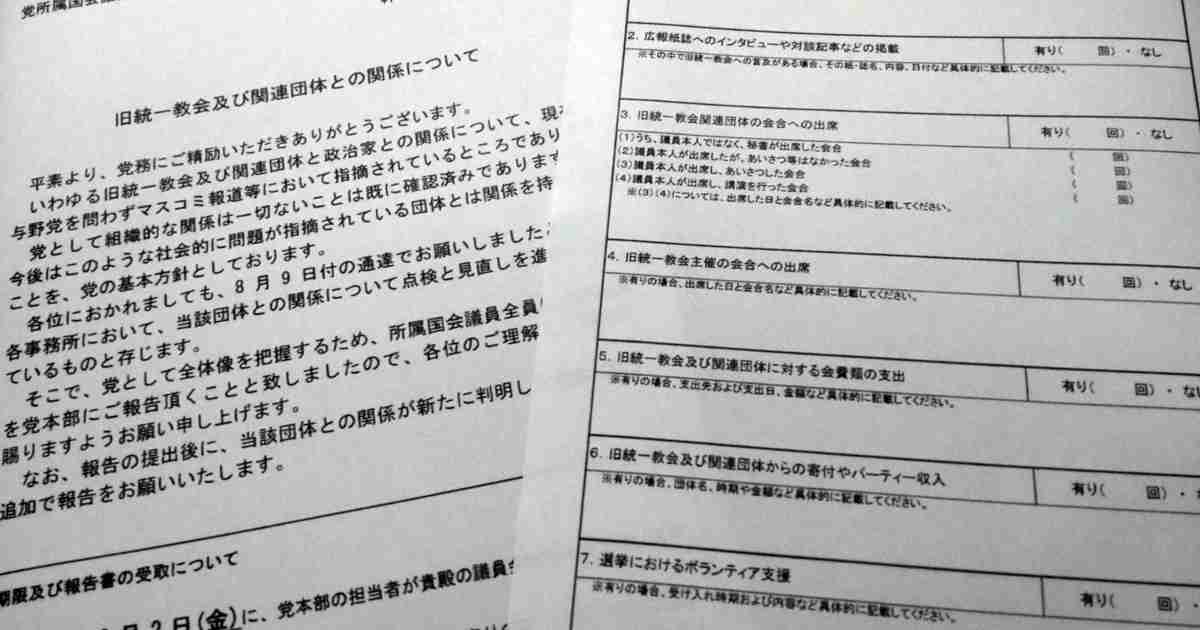 党所属国会議
旧統一教会及び関連団体との関係について
平素より、党務にご精励いただきありがとうございます。
いわゆる旧統一教会及び関連団体と政治家との関係について、現在
与野党を問わずマスコミ報道等において指摘されているところであり
党として組織的な関係は一切ないことは既に確認済みであります
今後はこのような社会的に問題が指摘されている団体とは関係を持
ことを、党の基本方針としております。
各位におかれましても、8月9日付の通達でお願いしました
各事務所において、当該団体との関係について点検と見直しを進
ているものと存じます。
そこで、党として全体像を把握するため、所属国会議員全員
を党本部にご報告頂くことと致しましたので、各位のご理解
賜りますようお願い申し上げます。
なお、報告の提出後に、当該団体との関係が新たに判明し
追加で報告をお願いいたします。
期限及び報告書の受取について
月2日(金)に、党本部の担当者が貴殿の議員会
2. 広報紙誌へのインタビューや対談記事などの掲載 有り( 回)・なし
※その中で旧統一教会への言及がある場合、その紙・誌名、内容、日付など具体的に記載してください。
3. 旧統一教会関連団体の会合への出席 有り( 回)・なし
(1)うち、議員本人ではなく、秘書が出席した会合 ( 回)
(2)議員本人が出席したが、あいさつ等はなかった会合 ( 回)
(3)議員本人が出席し、あいさつした会合 ( 回)
(4)議員本人が出席し、講演を行った会合 ( 回)
※(3)(4)については、出席した日と会合名など具体的に記載してください。
4. 旧統一教会主催の会合への出席 有り( 回)・なし
※有りの場合、出席した日と会合名など具体的に記載してください。
5. 旧統一教会及び関連団体に対する会費類の支出 有り( 回)・な
※有りの場合、支出先および支出日、金額など具体的に記載してください。
6. 旧統一教会及び関連団体からの寄付やパーティー収入 有り( 回)・
※有りの場合、団体名、時期や金額など具体的に記載してください。
7. 選挙におけるボランティア支援 有り( 回)・
※有りの場合、受け入れ時期および内容など具体的に記載してください。